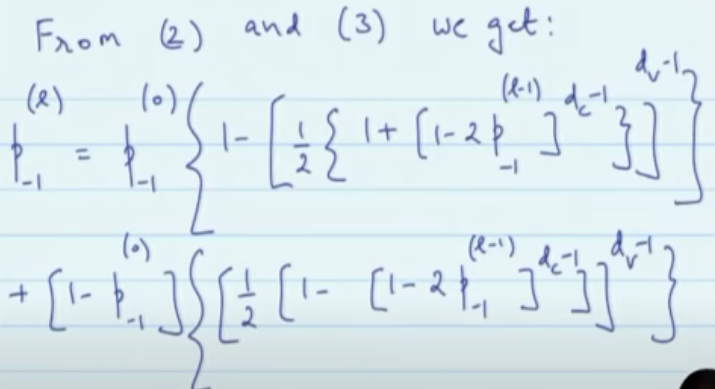 From (2) and (3) we get:
p_{-1}^{(l)} = p_{-1}^{(0)} { 1 - [ 1/2 { 1 + [ 1 - 2 p_{-1}^{(l-1)} ]^{d_c - 1} } ]^{d_v - 1} }
+ [ 1 - p_{-1}^{(0)} ] { [ 1/2 [ 1 - [ 1 - 2 p_{-1}^{(l-1)} ]^{d_c - 1} ] ]^{d_v - 1} }